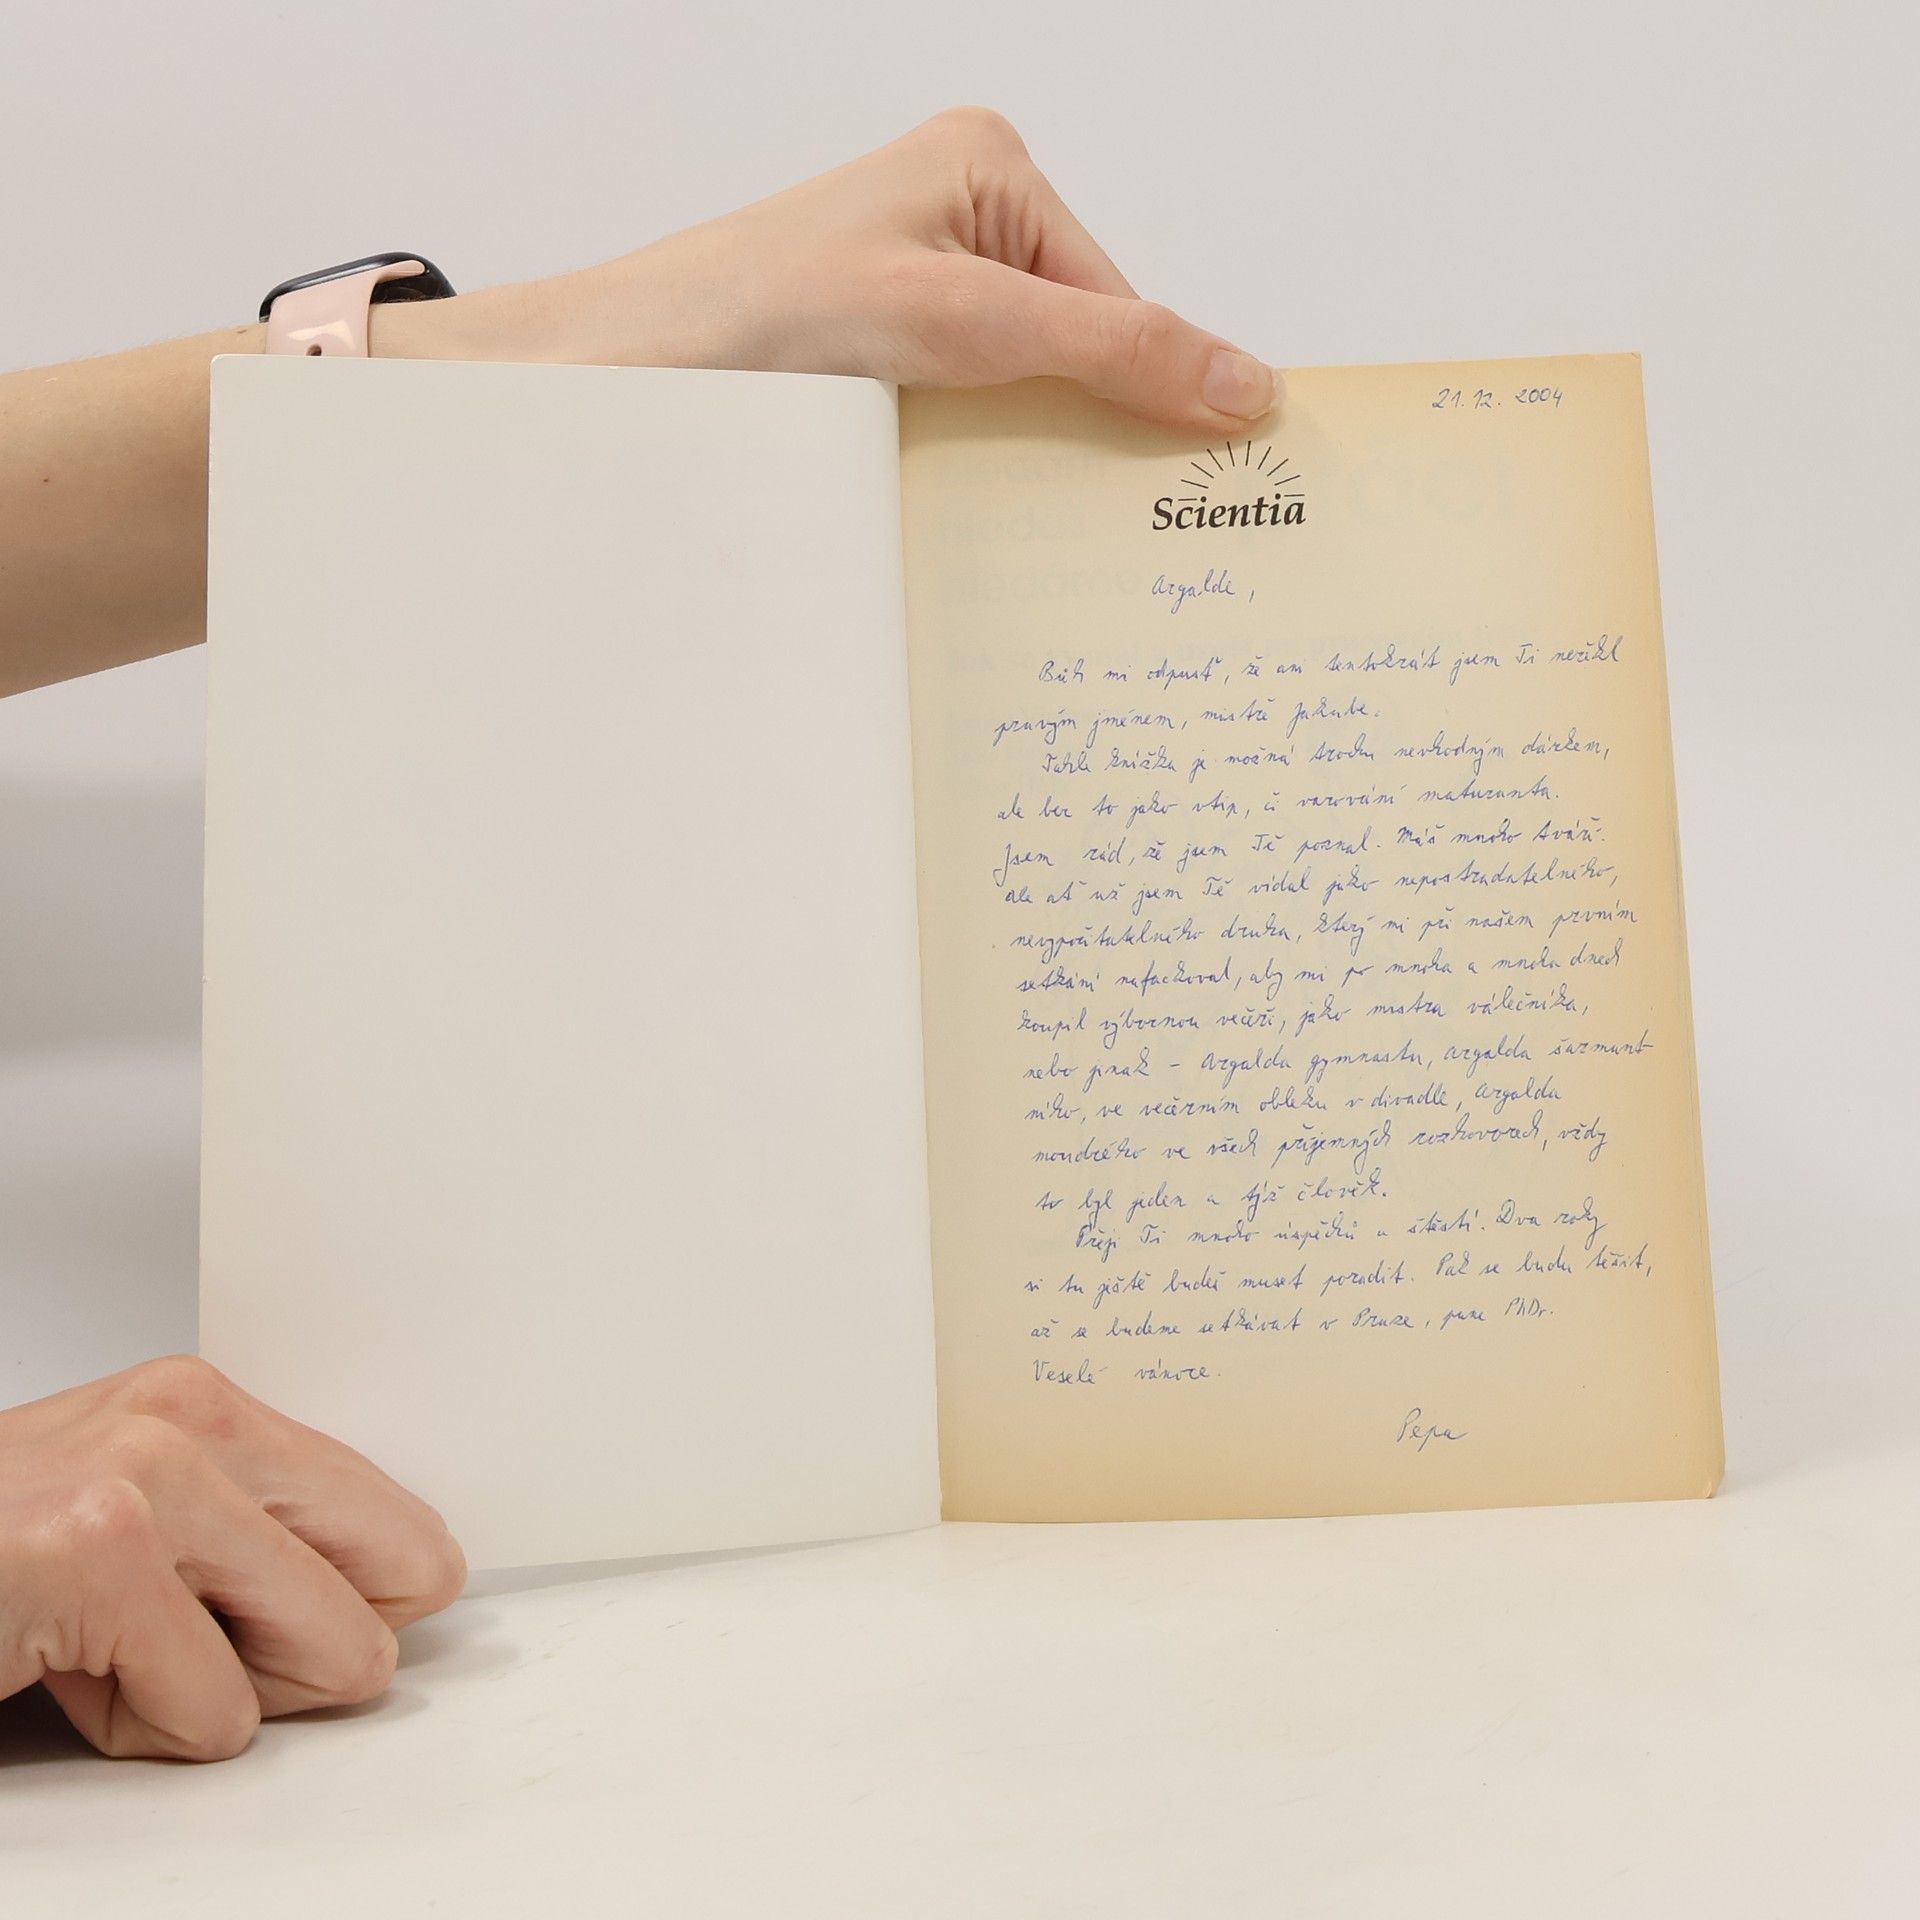 21. 12. 2004
Scientia
Argalde,
Bůh mi odpusť, že ani tentokrát jsem Ti neřekl
pravým jménem, mistře Jakube.
Tahle knížka je možná trochu nevhodným dárkem,
ale ber to jako vtip, či varování maturanta.
Jsem rád, že jsem Tě poznal. Máš mnoho tváří.
ale ať už jsem Tě vídal jako nepostradatelného,
nevypočitatelného druha, který mi při našem prvním
setkání nafackoval, aby mi po mnoha a mnoha dnech
koupil výbornou večeři, jako mistra válečníka,
nebo jinak – Argalda gymnastu, Argalda šarmant-
ního, ve večerním obleku v divadle, Argalda
moudrého ve všech příjemných rozhovorech, vždy
to byl jeden a týž člověk.
Přeji Ti mnoho úspěchů a štěstí. Dva roky
si tu ještě budeš muset poradit. Pak se budu těšit,
až se budeme setkávat v Praze, pane PhDr.
Veselé vánoce.
Pepa